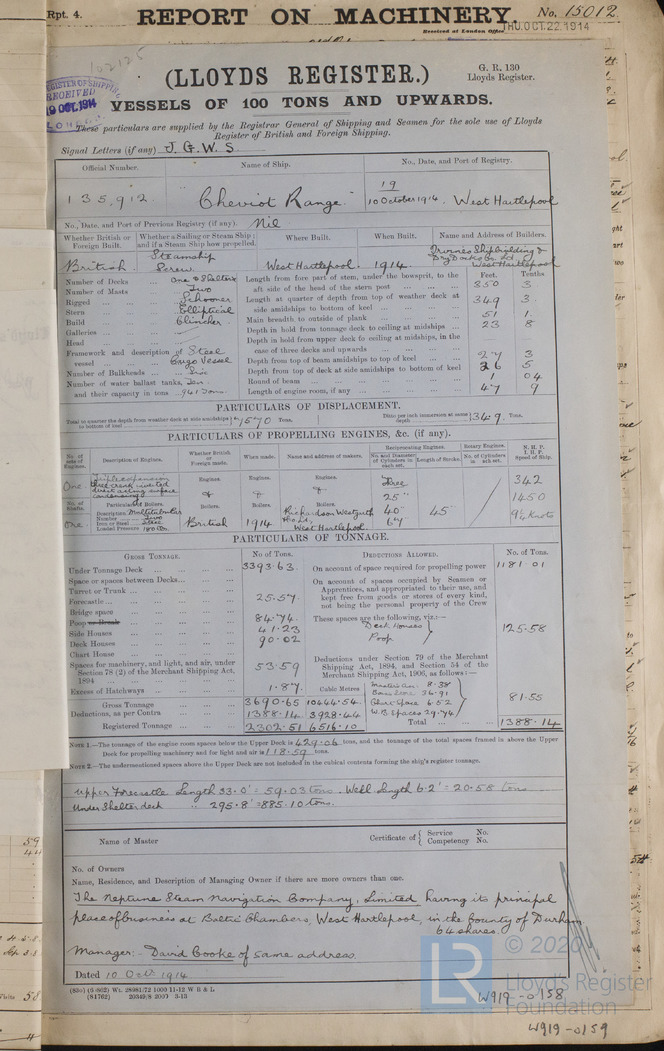 Rpt. 4.
REPORT ON MACHINERY.
No. 15012
Received at London Office THU.OCT.22.1914
102125
REGISTER OF SHIPPING
RECEIVED
19 OCT. 1914
LONDON
(LLOYDS REGISTER.)
G. R. 130
Lloyds Register.
VESSELS OF 100 TONS AND UPWARDS.
These particulars are supplied by the Registrar General of Shipping and Seamen for the sole use of Lloyds
Register of British and Foreign Shipping.
Signal Letters (if any) J. G. W. S
Official Number. Name of Ship. No., Date, and Port of Registry.
135,912 "Cheviot Range" 19
10 October 1914. West Hartlepool
No., Date, and Port of Previous Registry (if any). Nil
Whether British or Foreign Built. Whether a Sailing or Steam Ship; and if a Steam Ship how propelled. Where Built. When Built. Name and Address of Builders.
British Steamship Screw West Hartlepool 1914 Irvines Shipbuilding & Dry Docks Co. Ltd. West Hartlepool
Number of Decks ... One & Shelter
Number of Masts ... Two
Rigged ... Schooner
Stern ... Elliptical
Build ... Clincher
Galleries ...
Head ...
Framework and description of vessel ... Steel Cargo Vessel
Number of Bulkheads ... Six
Number of water ballast tanks, Ten
and their capacity in tons ... 961 Tons.
Feet. Tenths
Length from fore part of stem, under the bowsprit, to the
aft side of the head of the stern post ... 350 3
Length at quarter of depth from top of weather deck at
side amidships to bottom of keel ... 349 3
Main breadth to outside of plank ... 51 1
Depth in hold from tonnage deck to ceiling at midships ... 23 8
Depth in hold from upper deck to ceiling at midships, in the
case of three decks and upwards ...
Depth from top of beam amidships to top of keel ... 27 3
Depth from top of deck at side amidships to bottom of keel 26 5
Round of beam ... 1 04
Length of engine room, if any ... 47 9
PARTICULARS OF DISPLACEMENT.
Total to quarter the depth from weather deck at side amidships to bottom of keel 7570 Tons. Ditto per inch immersion at same depth 34.9 Tons.
PARTICULARS OF PROPELLING ENGINES, &c. (if any).
No. of sets of Engines. Description of Engines. Whether British or Foreign made. When made. Name and address of makers. Reciprocating Engines. Rotary Engines. N. H. P. I. H. P. Speed of Ship.
No. and Diameter of Cylinders in each set. Length of Stroke. No. of Cylinders in each set.
One Triple expansion three crank inverted direct acting surface condensing Engines. Engines. Engines. Three 342
25" 1450
No. of Shafts. Particulars of Boilers. Boilers. Boilers. Boilers. 40" 45"
One. Description Multitubular
Number ... Two
Iron or Steel ... Steel
Loaded Pressure 180 lbs.
British 1914 Richardsons Westgarth & Co. Ld. West Hartlepool. 67" 9¼ Knots
PARTICULARS OF TONNAGE.
GROSS TONNAGE. No. of Tons. DEDUCTIONS ALLOWED. No. of Tons.
Under Tonnage Deck ... 3393.63
Space or spaces between Decks...
Turret or Trunk ...
Forecastle... 25.57
Bridge space ...
Poop or Break ... 84.74
Side Houses ... 41.23
Deck Houses ... 90.02
Chart House ...
Spaces for machinery, and light, and air, under
Section 78 (2) of the Merchant Shipping Act,
1894 ... 53.59
Excess of Hatchways ... 1.87
Cubic Metres
Gross Tonnage ... 3690.65 10444.54
Deductions, as per Contra ... 1388.14 3928.44
Registered Tonnage ... 2302.51 6516.10
On account of space required for propelling power 1181.01
On account of spaces occupied by Seamen or
Apprentices, and appropriated to their use, and
kept free from goods or stores of every kind,
not being the personal property of the Crew
These spaces are the following, viz:—
Deck Houses
Poop
125.58
Deductions under Section 79 of the Merchant
Shipping Act, 1894, and Section 54 of the
Merchant Shipping Act, 1906, as follows:—
Masters Acc. 8.38
Bosns Store 36.91
Chart Space 6.52
W.B. Spaces 29.74
81.55
Total ... 1388.14
NOTE 1.—The tonnage of the engine room spaces below the Upper Deck is 429.06 tons, and the tonnage of the total spaces framed in above the Upper
Deck for propelling machinery and for light and air is 118.59 tons.
NOTE 2.—The undermentioned spaces above the Upper Deck are not included in the cubical contents forming the ship's register tonnage.
Upper Forecastle Length 33.0' = 59.03 tons. Well Length 6.2' = 20.58 tons
Under Shelter deck " 295.8' = 885.10 tons.
Name of Master
Certificate of { Service No.
Competency No.
No. of Owners
Name, Residence, and Description of Managing Owner if there are more owners than one.
The Neptune Steam Navigation Company, Limited having its principal
place of business at Baltic Chambers, West Hartlepool, in the County of Durham
64 shares.
Manager:- David Cooke of same address.
Dated 10 Octr 1914
(830) (5 602) Wt. 28981/72 1000 11-12 W B & L
(81762) 20349/8 2000 3-13
© 2020
LR
Lloyd's Register
Foundation
W919-0158
W919-0159